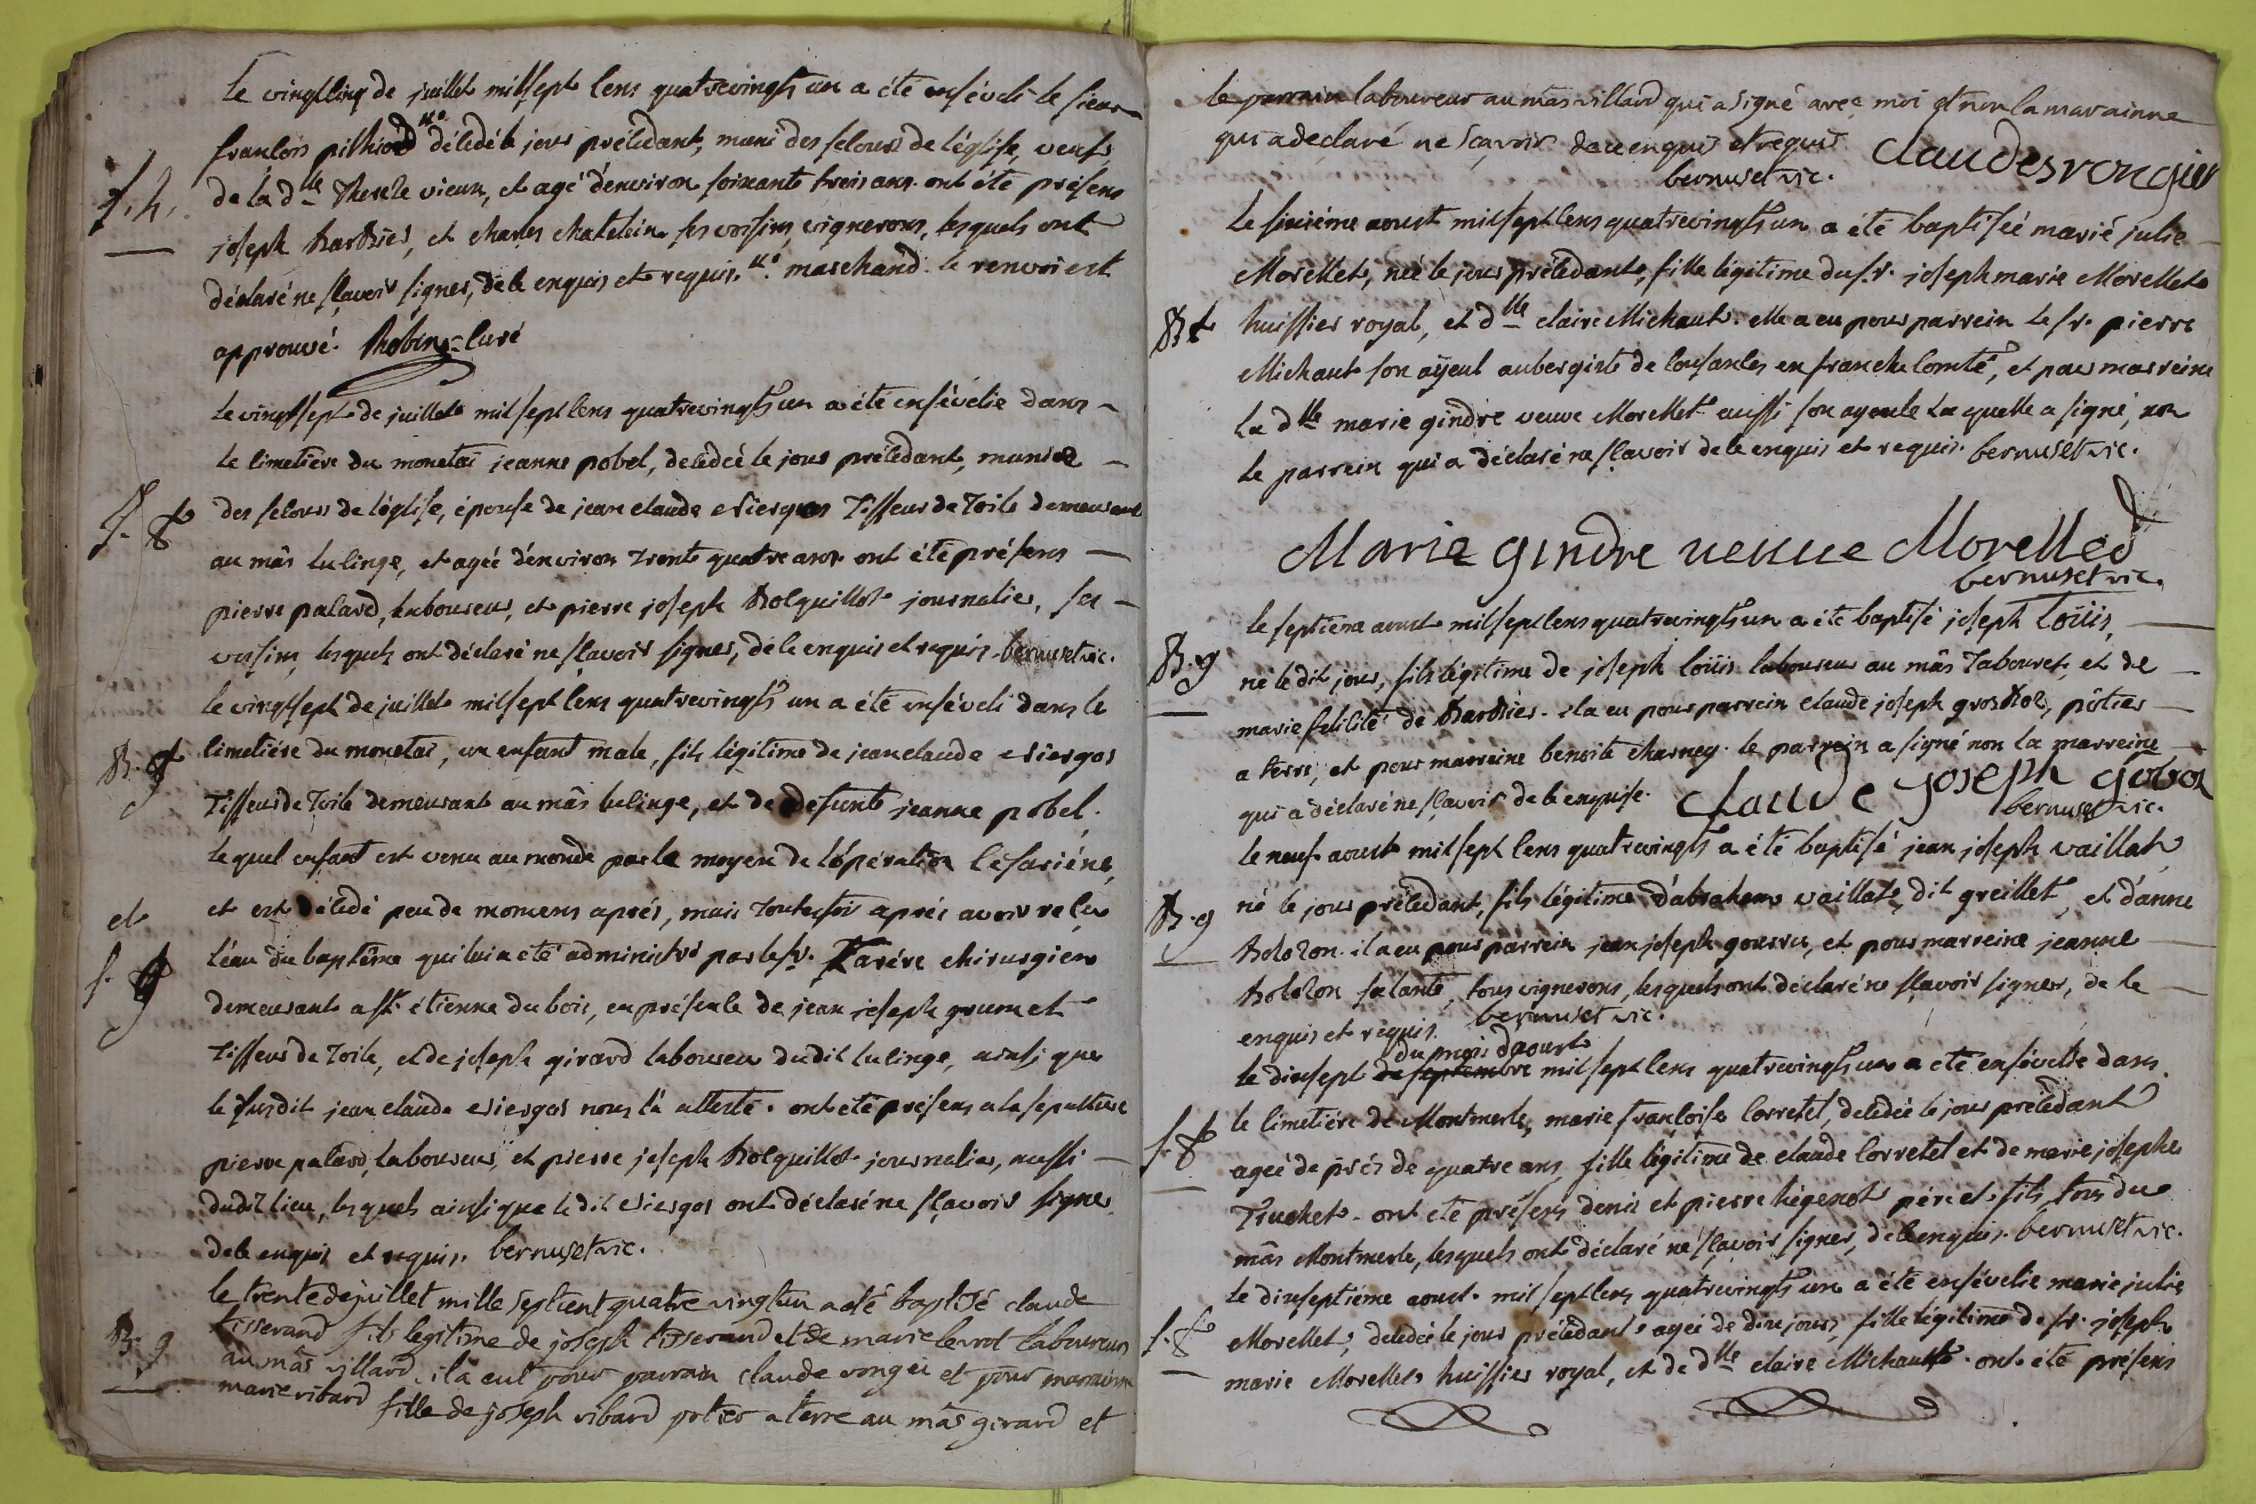 Le vingtcinq de juillet mil sept cens quatrevingts un a été ensévéli le sieur
françois pilhiod décédé le jour précédant, muni des secours de l'église, veuf
S. h. de la dlle Therese vieux, et agé d'environ soixante trois ans. ont été présens
joseph Barbier, et charles chatelain ses voisins, vignerons, lesquels ont
déclaré ne sçavoir signer, de ce enquis et requis. marchand. le renvoi est
approuvé. Robin curé
Le vingtsept de juillet mil sept cens quatrevingts un a été ensévélie dans
le cimetière du monetai jeanne pobel, décédée le jour précédant, munie
S. f des secours de l'église, épouse de jean claude Tisseur de Toile demeurant
au mâs lulinge, et agée d'environ trente quatre ans. ont été présens
pierre palard, laboureur, et pierre joseph Bolquillot journalier, ses
voisins, lesquels ont déclaré ne sçavoir signer, de ce enquis et requis. bernuset vic.
le vingtsept de juillet mil sept cens quatrevingts un a été ensévéli dans le
B. g cimetière du monetai, un enfant male, fils légitime de jean claude
Tisseur de Toile demeurant au mâs lulinge, et de défunte jeanne pobel.
lequel enfant est venu au monde par le moyen de l'opération césariéne,
et et est décédé peu de momens après, mais toutefois après avoir reçu
S. g l'eau du baptême qui lui a été administré par le sr. chirurgien
demeurant a st. étienne du bois, en présence de jean joseph grumet
Tisseur de Toile, et de joseph girard laboureur dudit lulinge, ainsi que
le susdit jean claude nous l'a attesté. ont été présens a la sépulture
pierre palard, laboureur, et pierre joseph Bolquillot journalier, aussi
dudit lieu, lesquels ainsi que le dit ont déclaré ne sçavoir signer
de ce enquis et requis. bernuset vic.
le trente de juillet mille sept cent quatre vingt un a été baptisé claude
B. g tisserand fils legitime de joseph tisserand et de marie laboureur
au mâs villard. il a eut pour parrain claude rongier et pour marainne
marie ribard fille de joseph ribard potier a terre au mâs girard et
le parrain laboureur au mas villard qui a signé avec moi et non la marainne
qui a declaré ne sçavoir de ce enquis et requis Claudes rongier
bernuset vic.
Le sixiéme aoust mil sept cens quatrevingts un a été baptisée marie julie
Morellet, née le jour précédant, fille légitime du sr. joseph marie Morellet
B f huissier royal, et dlle claire Michaut. elle a eu pour parrein le sr. pierre
Michaut son ayeul aubergiste de en franche comté, et pour marreine
la dlle marie gindre veuve Morellet aussi son ayeule laquelle a signé, non
le parrein qui a déclaré ne sçavoir de ce enquis et requis. bernuset vic.
Marie gindre veuve Morelled
bernuset vic.
le septieme aoust mil sept cens quatrevingts un a été baptisé joseph loüis,
B. g né le dit jour, fils légitime de joseph loüis laboureur au mâs Tabouret, et de
marie félicité de Barbier. il a eu pour parrein claude joseph , pôtier
a terre, et pour marreine benoite charney. le parrein a signé non la marreine
qui a déclaré ne sçavoir de ce enquise. Claude joseph
bernuset vic.
le neuf aoust mil sept cens quatrevingts a été baptisé jean joseph vaillat
B. g né le jour précédant, fils légitime d'abraham vaillat, dit greillet, et d'anne
Bolozon. il a eu pour parrein jean joseph , et pour marreine jeanne
Bolozon sa tante, tous vignerons, lesquels ont déclaré ne sçavoir signer, de ce
enquis et requis. bernuset vic.
du mois d'aoust
le dixsept de septembre mil sept cens quatrevingts un a été ensévélie dans
le cimetière de Montmerle, marie françoise Corretel, décédée le jour précédant
S. f agée de près de quatre ans, fille légitime de claude Corretel et de marie josephe
Truchet. ont été présens denis et pierre père et fils, tous du
mâs Montmerle, lesquels ont déclaré ne sçavoir signer, de ce enquis. bernuset vic.
Le dixseptiéme aoust mil sept cens quatrevingts un a été ensévélie marie julie
S. f Morellet, décédée le jour précédant, agée de dix jours, fille légitime de sr. joseph
marie Morellet huissier royal, et de dlle claire Michaut. ont été présens